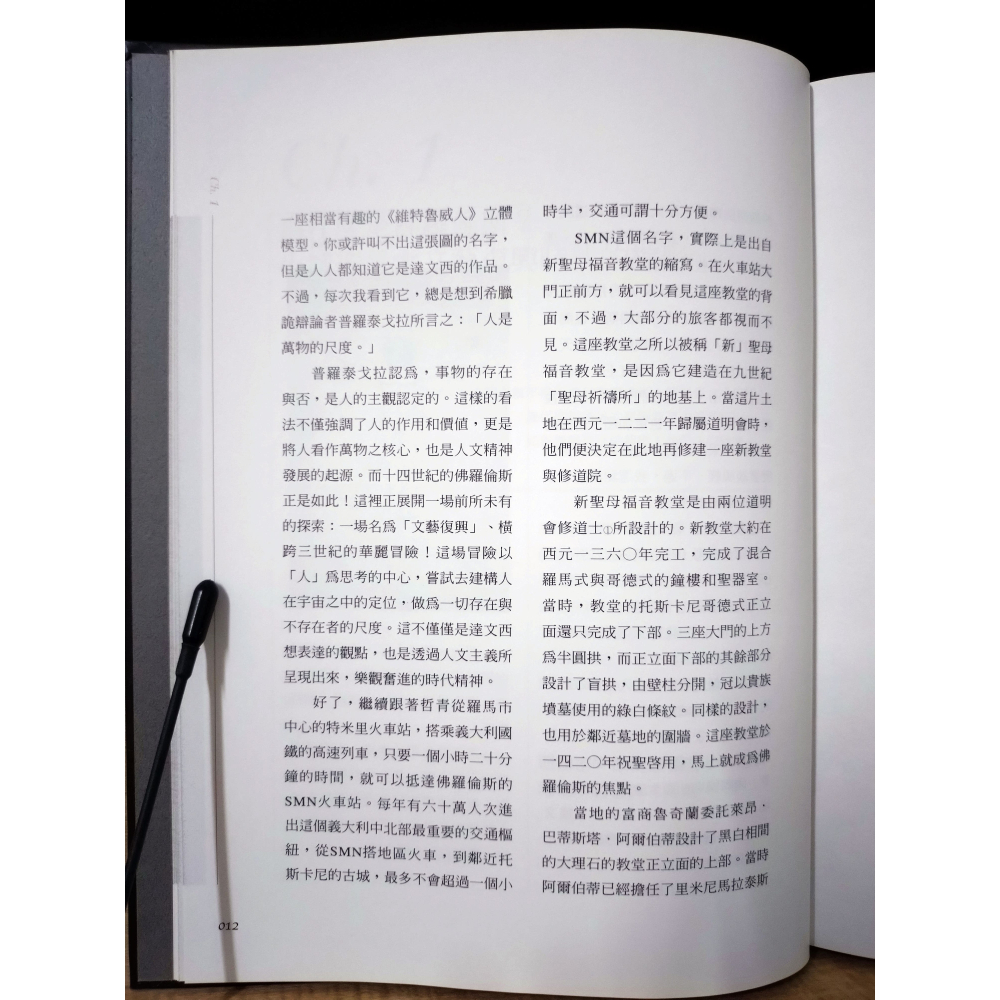 Ch. 1
一座相當有趣的《維特魯威人》立體
模型。你或許叫不出這張圖的名字，
但是人人都知道它是達文西的作品。
不過，每次我看到它，總是想到希臘
詭辯論者普羅泰戈拉所言之：「人是
萬物的尺度。」
普羅泰戈拉認為，事物的存在
與否，是人的主觀認定的。這樣的看
法不僅強調了人的作用和價值，更是
將人看作萬物之核心，也是人文精神
發展的起源。而十四世紀的佛羅倫斯
正是如此！這裡正展開一場前所未有
的探索：一場名為「文藝復興」、橫
跨三世紀的華麗冒險！這場冒險以
「人」為思考的中心，嘗試去建構人
在宇宙之中的定位，做為一切存在與
不存在者的尺度。這不僅僅是達文西
想表達的觀點，也是透過人文主義所
呈現出來，樂觀奮進的時代精神。
好了，繼續跟著哲青從羅馬市
中心的特米里火車站，搭乘義大利國
鐵的高速列車，只要一個小時二十分
鐘的時間，就可以抵達佛羅倫斯的
SMN火車站。每年有六十萬人次進
出這個義大利中北部最重要的交通樞
紐，從SMN搭地區火車，到鄰近托
斯卡尼的古城，最多不會超過一個小
時半，交通可謂十分方便。
SMN這個名字，實際上是出自
新聖母福音教堂的縮寫。在火車站大
門正前方，就可以看見這座教堂的背
面，不過，大部分的旅客都視而不
見。這座教堂之所以被稱「新」聖母
福音教堂，是因為它建造在九世紀
「聖母祈禱所」的地基上。當這片土
地在西元一二二一年歸屬道明會時，
他們便決定在此地再修建一座新教堂
與修道院。
新聖母福音教堂是由兩位道明
會修道士①所設計的。新教堂大約在
西元一三六〇年完工，完成了混合
羅馬式與哥德式的鐘樓和聖器室。
當時，教堂的托斯卡尼哥德式正立
面還只完成了下部。三座大門的上方
為半圓拱，而正立面下部的其餘部分
設計了盲拱，由壁柱分開，冠以貴族
墳墓使用的綠白條紋。同樣的設計，
也用於鄰近墓地的圍牆。這座教堂於
一四二〇年祝聖啓用，馬上就成為佛
羅倫斯的焦點。
當地的富商魯奇蘭委託萊昂．
巴蒂斯塔．阿爾伯蒂設計了黑白相間
的大理石的教堂正立面的上部。當時
阿爾伯蒂已經擔任了里米尼馬拉泰斯
012